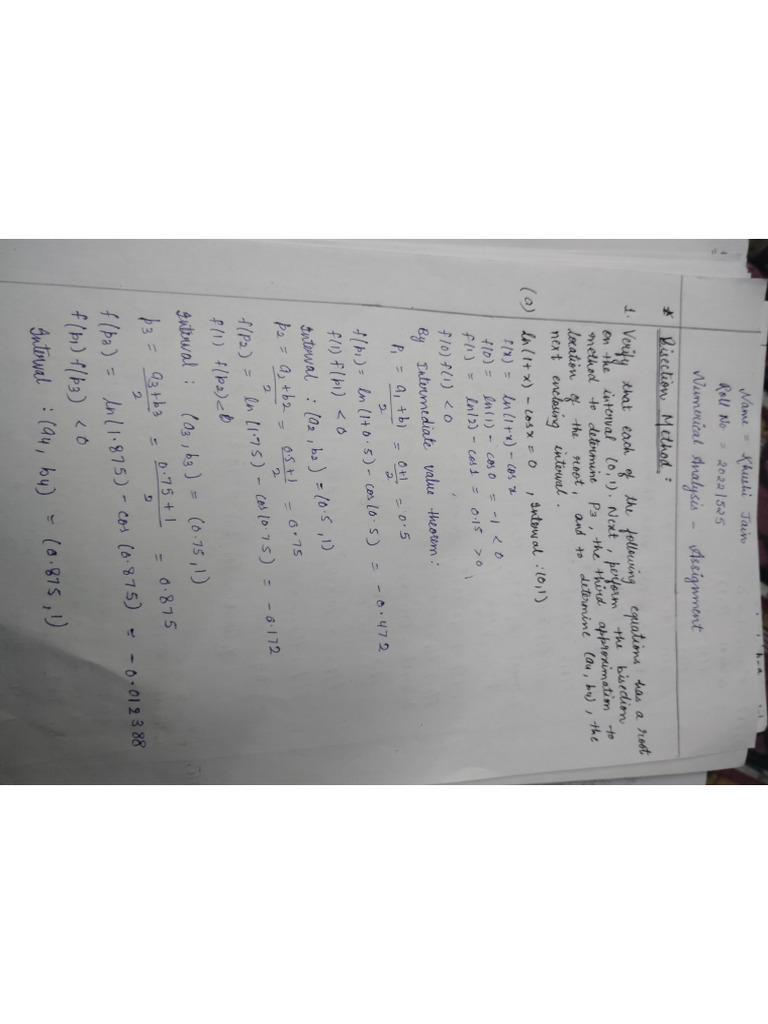 Name = Khushi Jain
Roll No = 2022/525
Numerical Analysis - Assignment
* Bisection Method :
1. Verify that each of the following equations has a root
on the interval (0,1). Next, perform the bisection
method to determine P3, the third approximation to
location of the root, and to determine (a4, b4), the
next enclosing interval.
(a) ln(1+x) - cosx = 0 , Interval : (0,1)
f(x) = ln(1+x) - cosx
f(0) = ln(1) - cos0 = -1 < 0
f(1) = ln(2) - cos1 = 0.15 > 0
f(0) f(1) < 0
By Intermediate value theorem :
P1 = a1 + b1 / 2 = 0+1 / 2 = 0.5
f(p1) = ln(1+0.5) - cos(0.5) = -0.472
f(1) f(p1) < 0
Interval : (a2, b2) = (0.5, 1)
p2 = a2 + b2 / 2 = 0.5+1 / 2 = 0.75
f(P2) = ln(1.75) - cos(0.75) = -0.172
f(1) f(p2) < 0
Interval : (a3, b3) = (0.75, 1)
p3 = a3+b3 / 2 = 0.75+1 / 2 = 0.875
f(p3) = ln(1.875) - cos(0.875) = -0.012388
f(b1) f(p3) < 0
Interval : (a4, b4) = (0.875, 1)